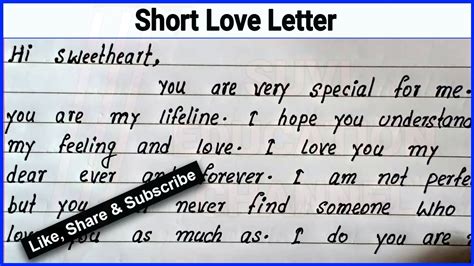 Short Love Letter
Hi sweetheart,
You are very special for me.
you are my lifeline. I hope you understand
my feeling and love. I love you my
dear ever and forever. I am not perfe
but you never find someone who
lov you as much as. I do you are
Like, Share & Subscribe